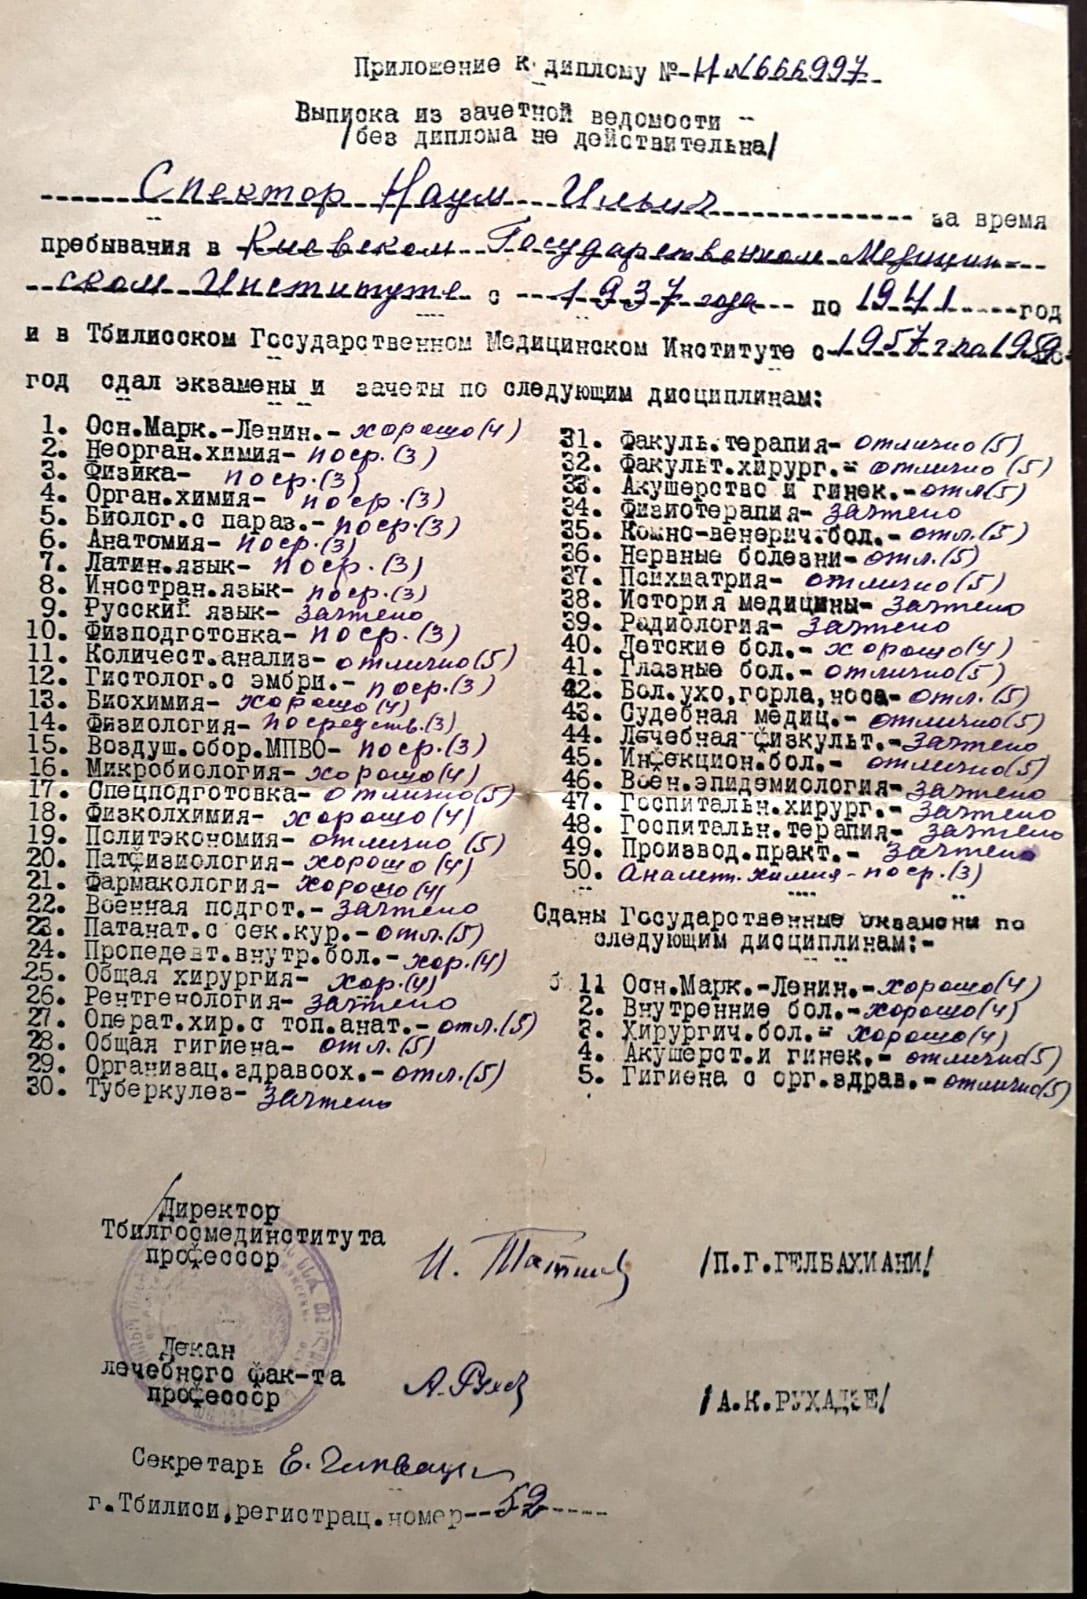 Приложение к диплому №-Н №666997
Выписка из зачетной ведомости -
/без диплома не действительна/
Спектор Наум Ильич за время
пребывания в Киевском Государственном Медицин-
ском Институте с 1937 года по 1941 год
и в Тбилисском Государственном Медицинском Институте с 1957 г по 1959
год сдал экзамены и зачеты по следующим дисциплинам:
1. Осн.Марк.-Ленин.- хорошо (4)
2. Неорган.химия- поср. (3)
3. Физика- поср. (3)
4. Орган.химия- поср. (3)
5. Биолог.с параз.- поср. (3)
6. Анатомия- поср. (3)
7. Латин.язык- поср. (3)
8. Иностран.язык- поср. (3)
9. Русский язык- зачтено
10. Физподготовка- поср. (3)
11. Количест.анализ- отлично (5)
12. Гистолог.с эмбри.- поср. (3)
13. Биохимия- хорошо (4)
14. Физиология- посредств. (3)
15. Воздуш.обор.МПВО- поср. (3)
16. Микробиология- хорошо (4)
17. Спецподготовка- отлично (5)
18. Физколхимия- хорошо (4)
19. Политэкономия- отлично (5)
20. Патфизиология- хорошо (4)
21. Фармакология- хорошо (4)
22. Военная подгот.- зачтено
23. Патанат.с сек.кур.- отл. (5)
24. Пропедевт.внутр.бол.- хор. (4)
25. Общая хирургия- хор. (4)
26. Рентгенология- зачтено
27. Операт.хир.с топ.анат.- отл. (5)
28. Общая гигиена- отл. (5)
29. Организац.здравоох.- отл. (5)
30. Туберкулез- зачтено
31. Факуль.терапия- отлично (5)
32. Факульт.хирург.- отлично (5)
33. Акушерство и гинек.- отл (5)
34. Физиотерапия- зачтено
35. Кожно-венерич.бол.- отл. (5)
36. Нервные болезни- отл. (5)
37. Психиатрия- отлично (5)
38. История медицины- зачтено
39. Радиология- зачтено
40. Детские бол.- хорошо (4)
41. Глазные бол.- отлично (5)
42. Бол.ухо,горла,носа- отл. (5)
43. Судебная медиц.- отлично (5)
44. Лечебная физкульт.- зачтено
45. Инфекцион.бол.- отлично (5)
46. Воен.эпидемиология- зачтено
47. Госпитальн.хирург.- зачтено
48. Госпитальн.терапия- зачтено
49. Производ.практ.- зачтено
50. Аналит. химия - поср. (3)
Сданы Государственные экзамены по
следующим дисциплинам:-
11 Осн.Марк.-Ленин.- хорошо (4)
2. Внутренние бол.- хорошо (4)
3. Хирургич.бол.- хорошо (4)
4. Акушерст.и гинек.- отлично (5)
5. Гигиена с орг.здрав.- отлично (5)
Директор
Тбилгосмединститута
профессор /П.Г.ГЕЛБАХИАНИ/
Декан
лечебного фак-та
профессор /А.К.РУХАДЗЕ/
Секретарь
г.Тбилиси,регистрац.номер 52